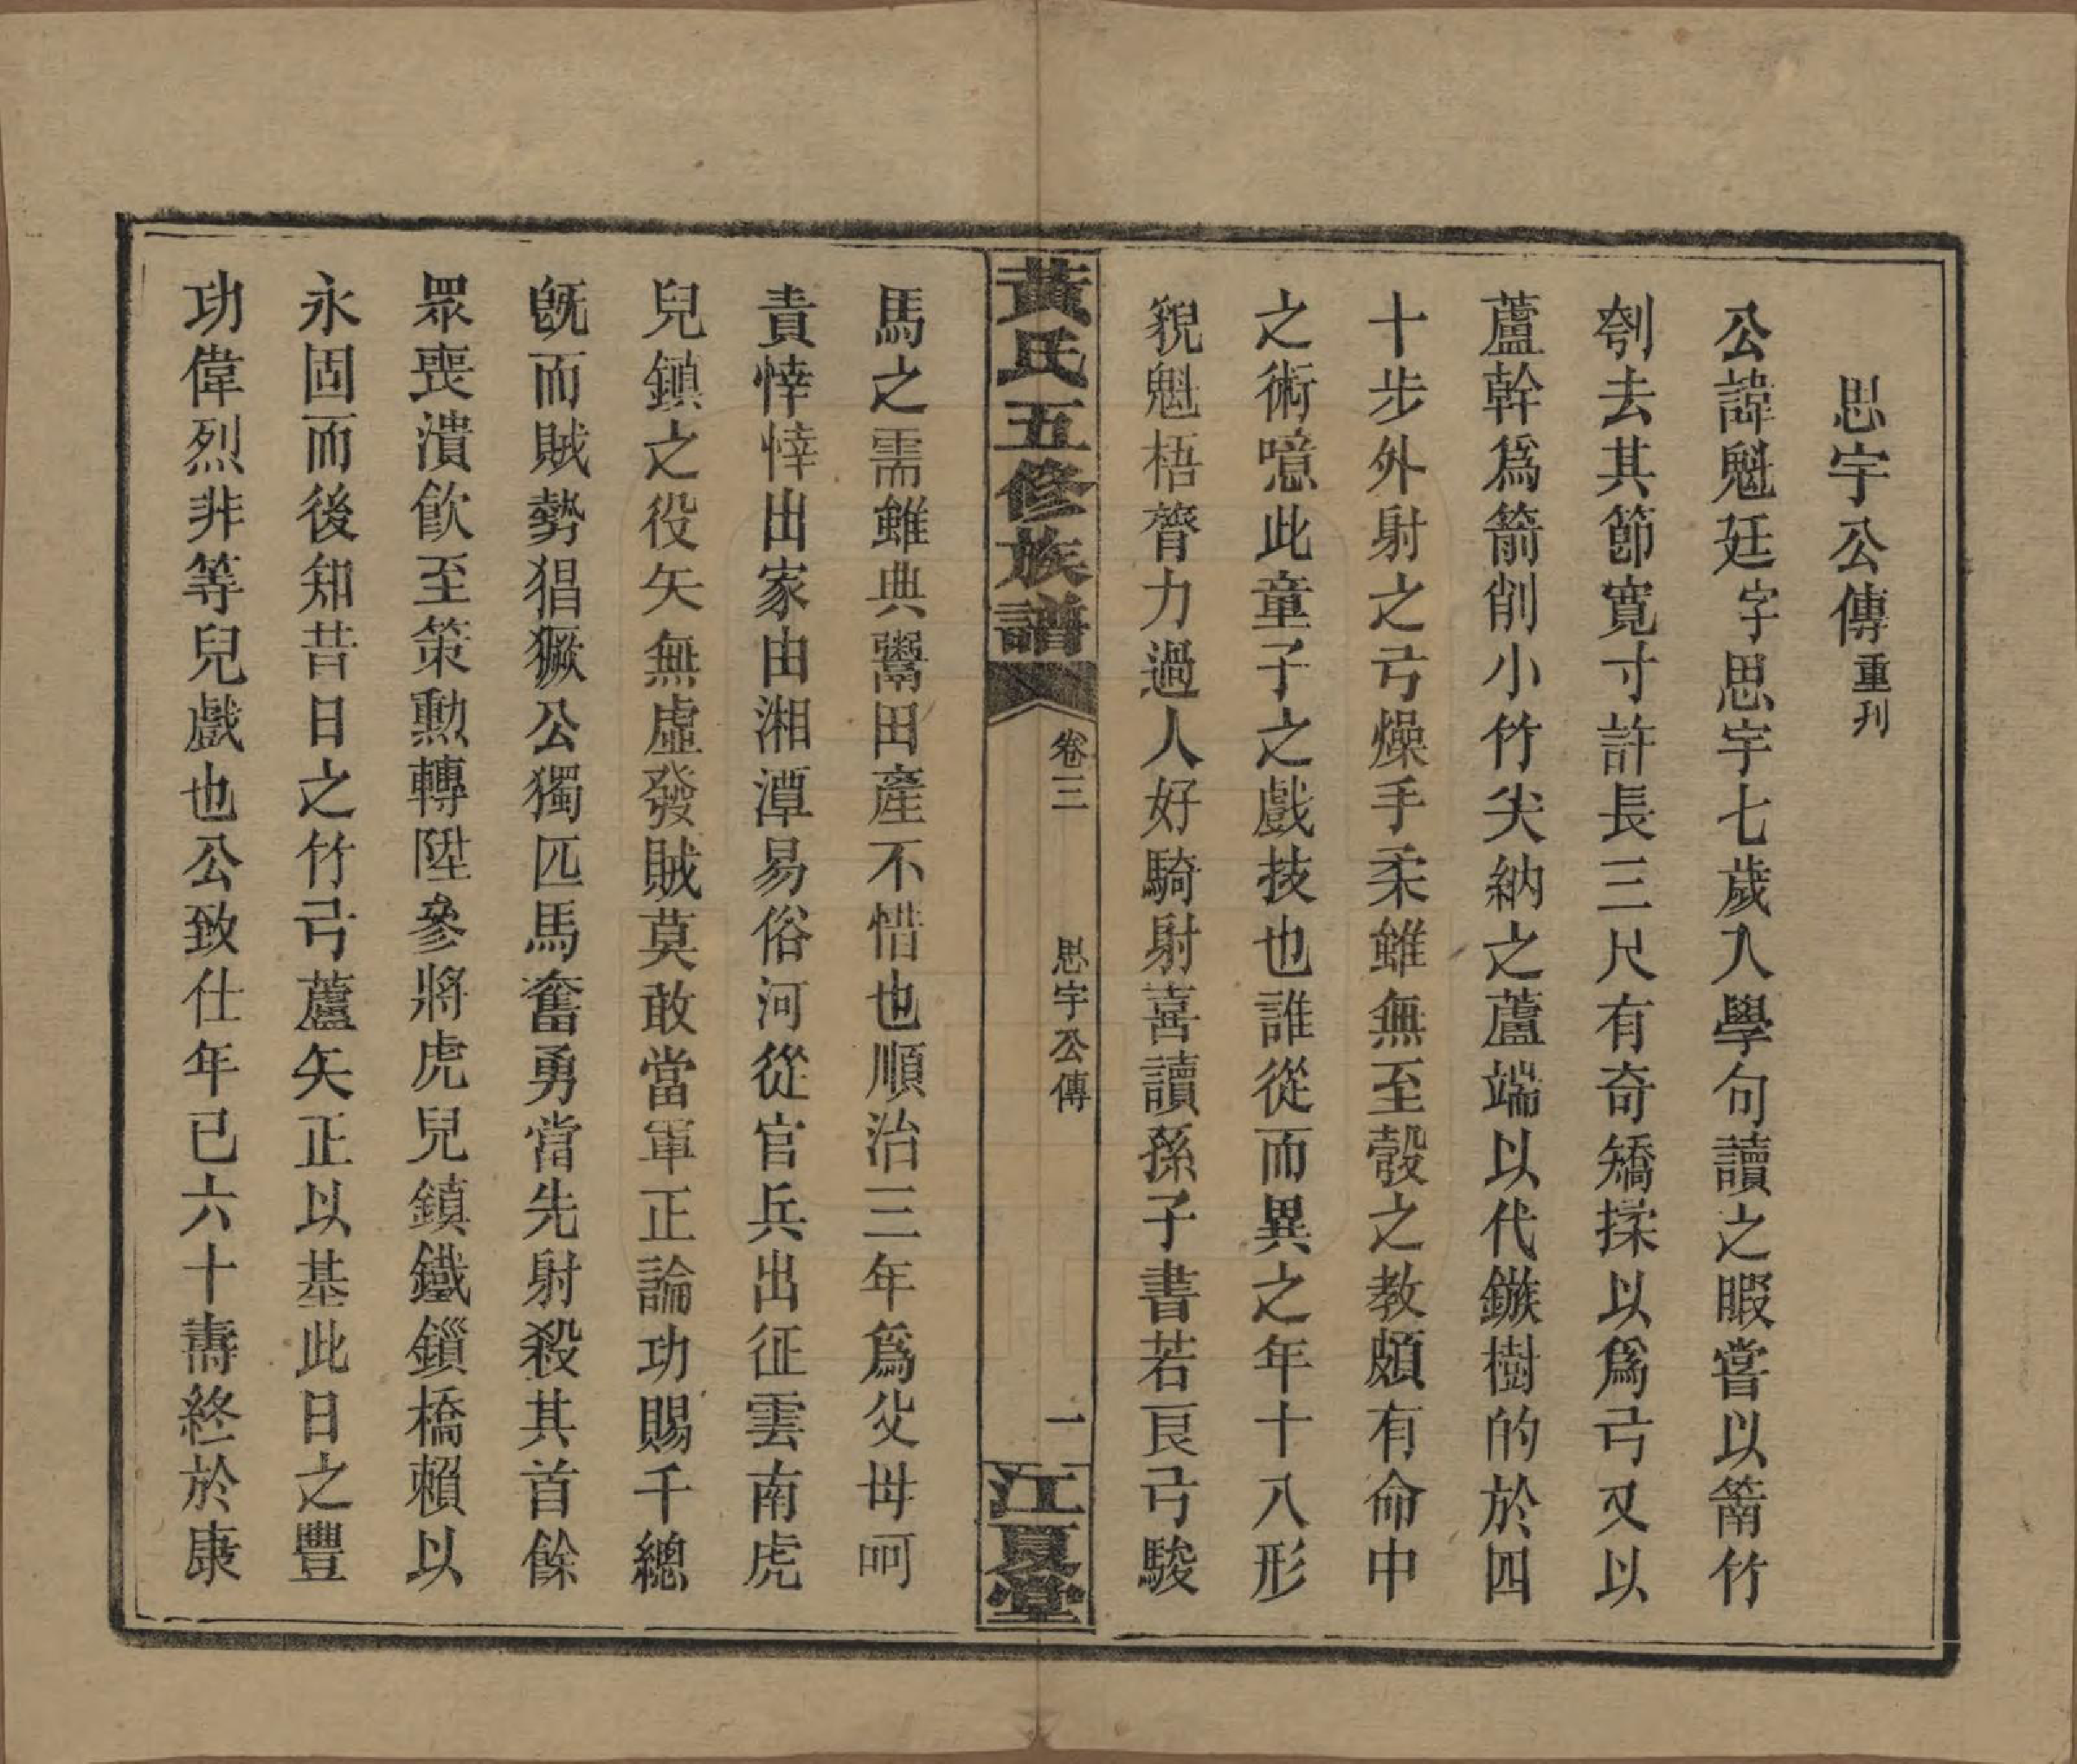 思宇公傳重刊
公諱魁廷字思宇七歲入學句讀之暇嘗以箭竹
刳去其節寬寸許長三尺有奇矯揉以爲弓又以
蘆幹爲箭削小竹尖納之蘆端以代鏃樹的於四
十步外射之弓燥手柔雖無至彀之教頗有命中
之術噫此童子之戲技也誰從而異之年十八形
貌魁梧膂力過人好騎射喜讀孫子書若良弓駿
黃氏五修族譜
卷三
思宇公傳
一
江夏堂
馬之需雖典鬻田產不惜也順治三年爲父母呵
責悻悻出家由湘潭易俗河從官兵出征雲南虎
兒鎮之役矢無虛發賊莫敢當軍正論功賜千總
旣而賊勢猖獗公獨匹馬奮勇當先射殺其首餘
眾喪潰飮至策勳轉陞參將虎兒鎮鐵鎖橋賴以
永固而後知昔日之竹弓蘆矢正以基此日之豐
功偉烈非等兒戲也公致仕年已六十壽終於康